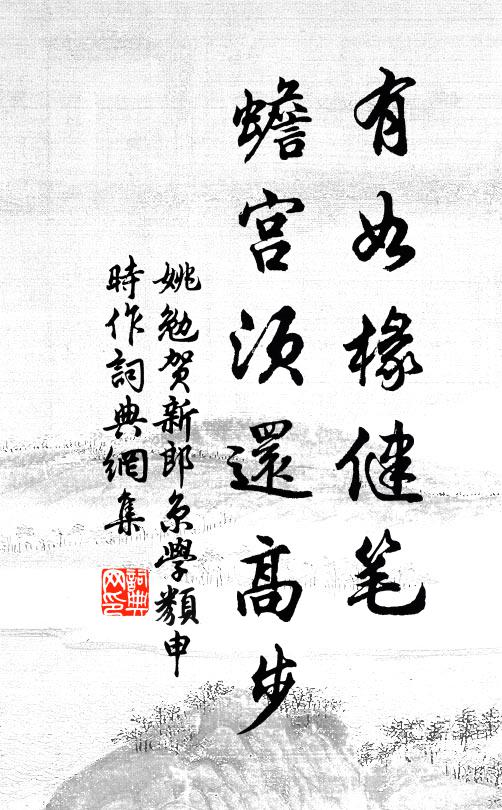 有如椽健笔
蟾宫须還高步
姚勉贺新郎京学類申
時作詞典網集
詞典
网印